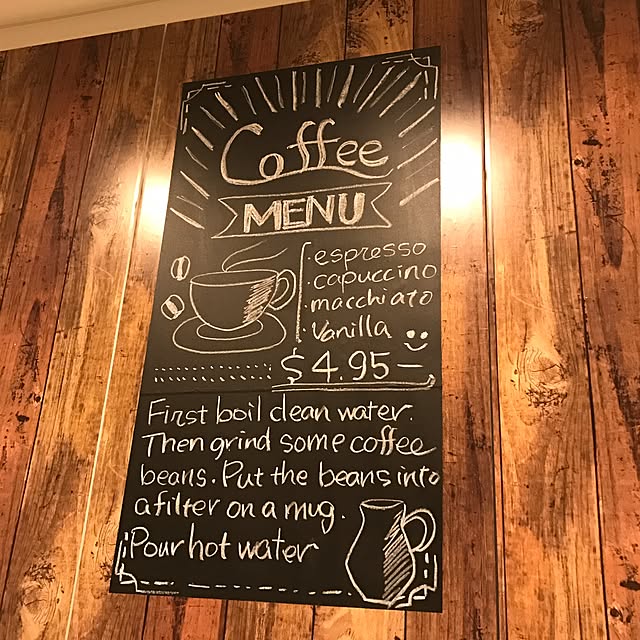 Coffee
MENU
· espresso
· capuccino
· macchiato
· Vanilla
$4.95—
First boil clean water.
Then grind some coffee
beans. Put the beans into
a filter on a mug.
Pour hot water